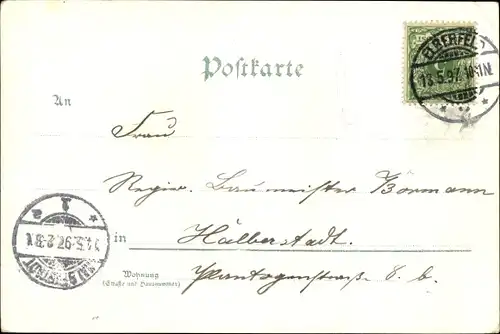 Postkarte
ELBERFELD
13.5.97. 10-11N.
An
Frau
Regier. Baumeister Börmann
in Halberstadt.
Wohnung
(Straße und Hausnummer)
Plantagenstraße 8. b.